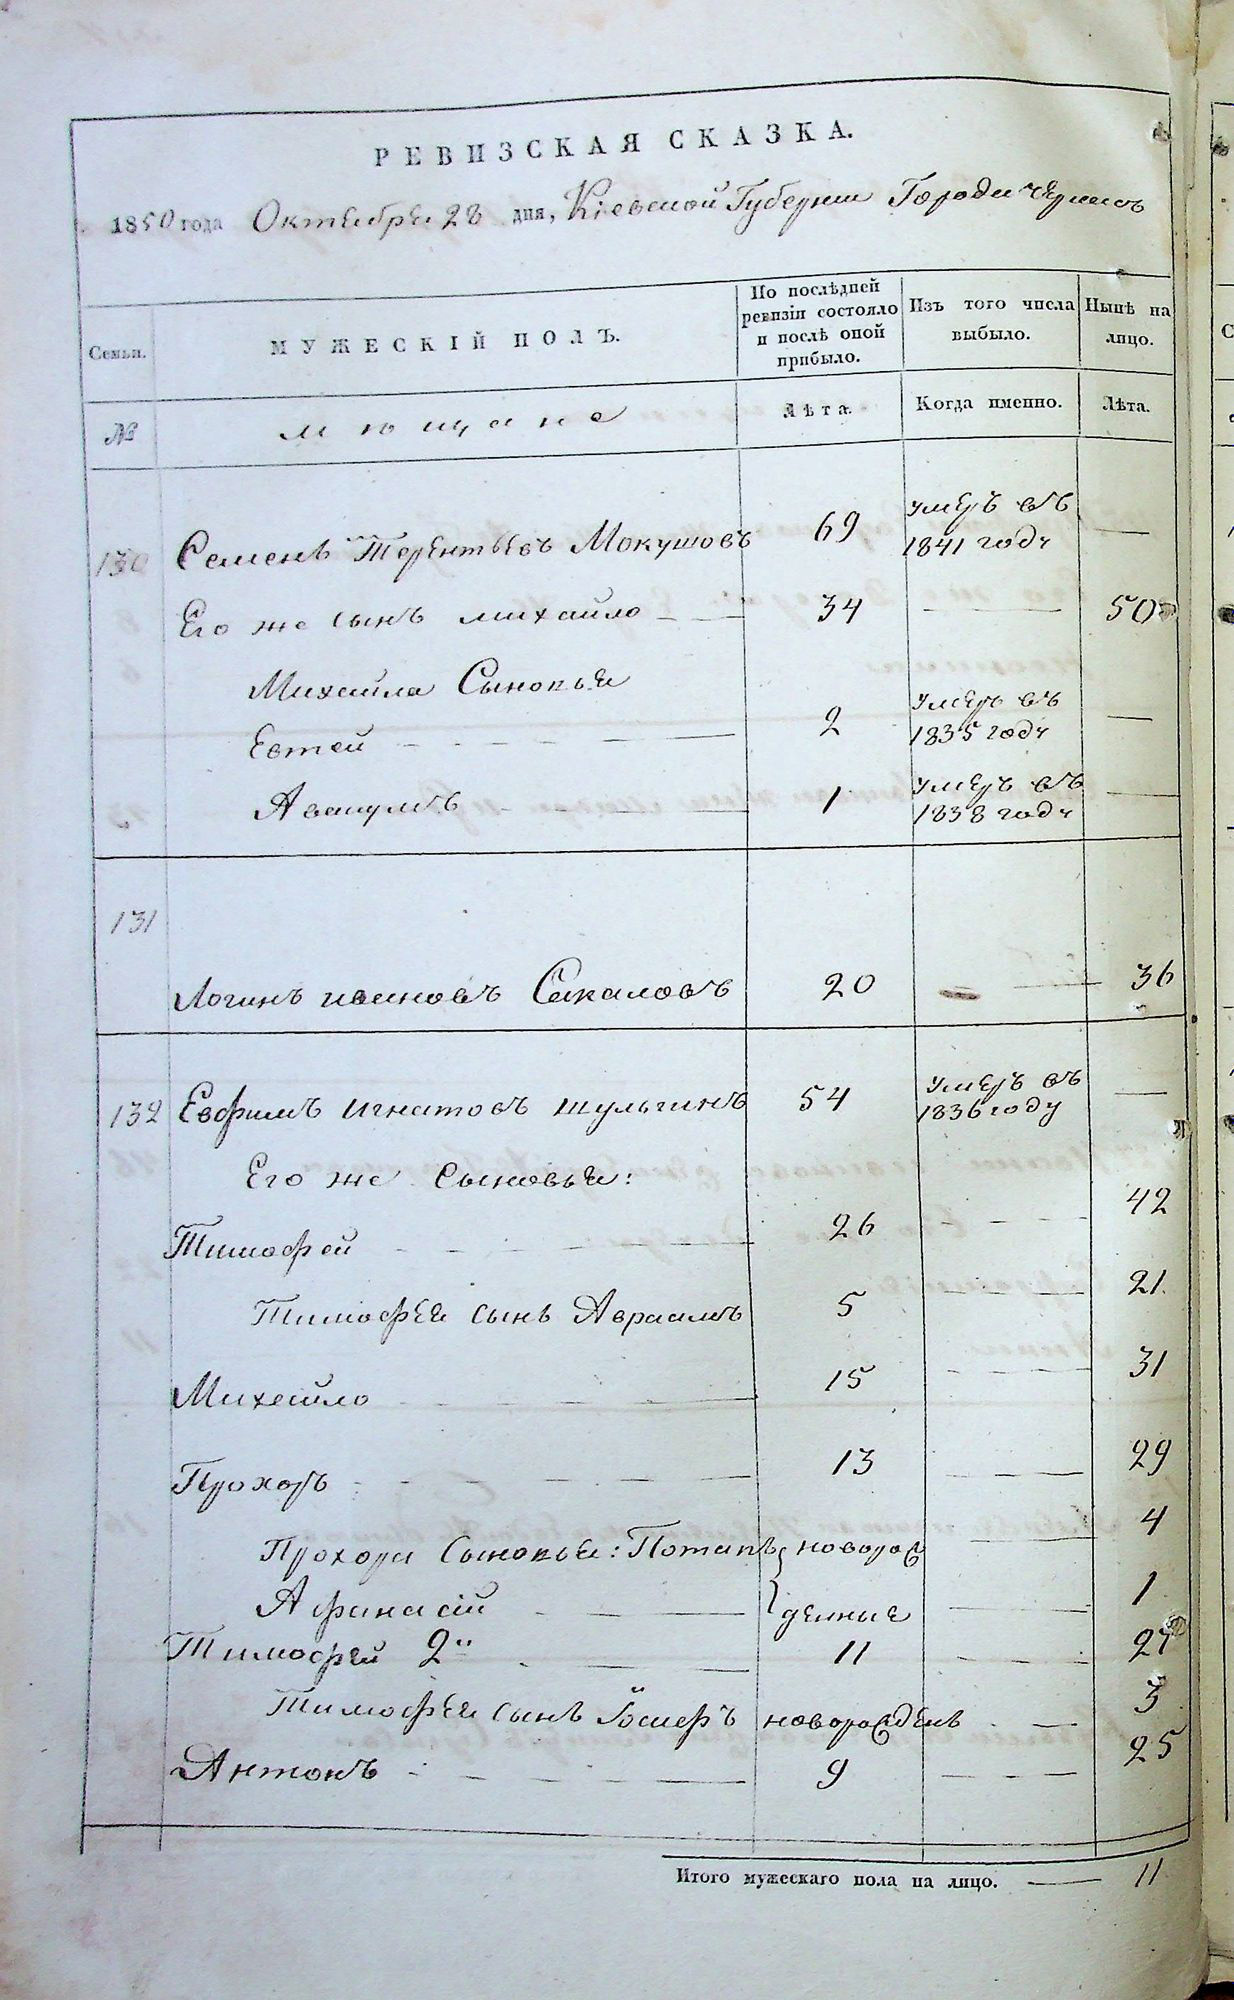 РЕВИЗСКАЯ СКАЗКА.
1850 года Октебря 28 дня, Кіевской Губернии Города
Семьи. МУЖЕСКІЙ ПОЛЪ. По послѣдней ревизіи состояло и послѣ оной прибыло. Изъ того числа выбыло. Нынѣ на лицо.
№ мѣщане Лѣта. Когда именно. Лѣта.
130 Семенъ Терентьевъ Мокушовъ 69 умеръ въ 1841 году —
Его же сынъ михайло 34 — 50
Михайла Сыновья
Евтей 2 Умеръ въ 1835 году —
Авакумъ 1 Умеръ въ 1838 году —
131
Логинъ ивановъ Сакаловъ 20 — 36
132 Евфимъ игнатовъ шульгинъ 54 умеръ въ 1836 году —
Его же Сыновья:
Тимофей 26 42
Тимофея сынъ Авраамъ 5 21
Михайло 15 31
Прохоръ 13 29
Прохора Сыновья: Потапъ новорож 4
Афанасій денные 1
Тимофей 2й 11 27
Тимофея сынъ Іосифъ новорожденъ 3
Антонъ 9 25
Итого мужескаго пола на лицо. — 11